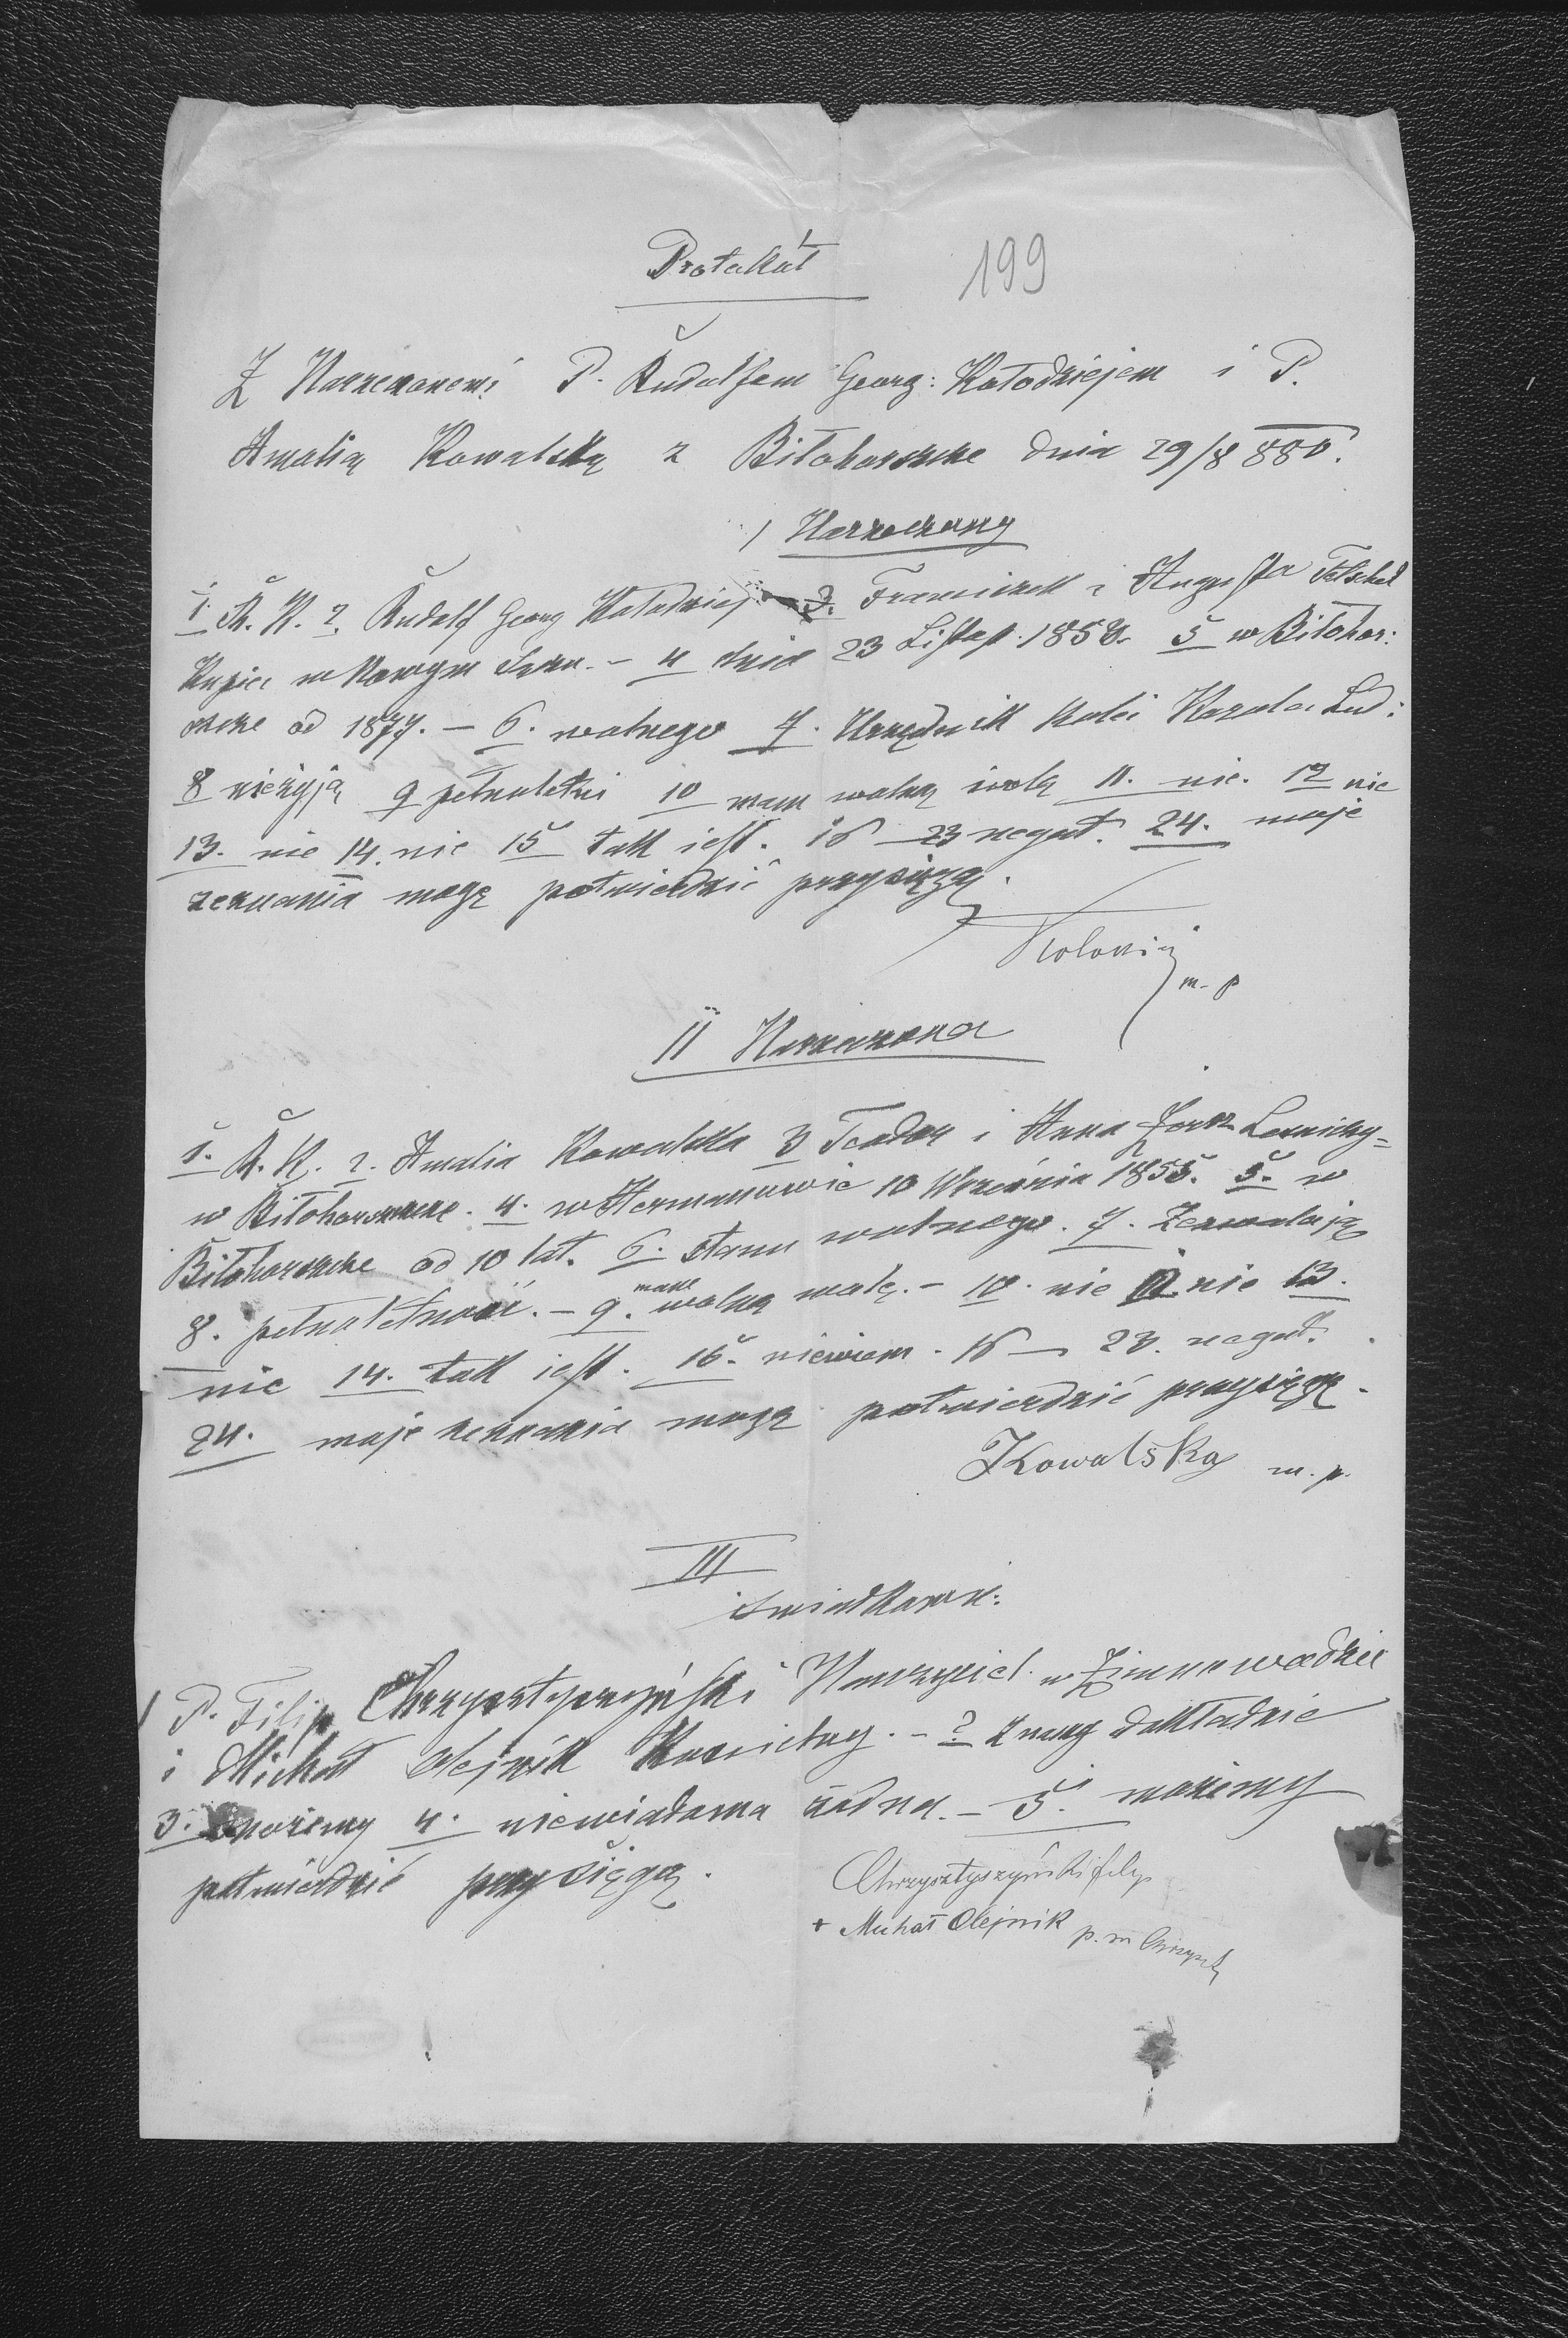 Protokół 199
Z Narzeczonemi P. Rudolfem Georg: Kołodziejem i P.
Amalią Kowalską z Biłohorszcze dnia 29/8 880.
I Narzeczony
1. R. K. 2. Rudolf Georg Kołodziej 3. Franciszek i Augusta
Kupiec w Nowym Sączu. – 4 dnia 23 Listop. 1858. 5 w Biłohor:
szcze od 1877. – 6. wolnego 7. Urzędnik Kolei Karola Lud:
8 nieżyją 9 pełnoletni 10 mam wolną wolę 11. nie. 12 nie
13. nie 14. nie 15 tak jest. 16 – 23 negat. 24. moje
zeznania mogę potwierdzić przysięgą.
m. p
II Narzeczona
1. R. K. 2. Amalia Kowalska 3 Teodor i Anna
w Biłohorszcze. 4. w 10 Września 1855. 5. w
Biłohorszcze od 10 lat. 6. stanu wolnego. 7. Zezwalają
8. pełnoletność. – 9. mam wolną wolę. – 10. nie nie 13.
nie 14. tak jest. 15. niewiem. 16 – 23. negat.
24. moje zeznania mogę potwierdzić przysięgą.
Kowalska m. p.
III
Świadkowie:
1 P. Filip Chrzysztyszyński Nauczyciel w Zimnowodzie
i Michał Olejnik Kościelny. – 2 znamy dokładnie
3. możemy 4. niewiadoma żadna. – 5. możemy
potwierdzić przysięgą.
Chrzysztyszyński
+ Michał Olejnik p. m